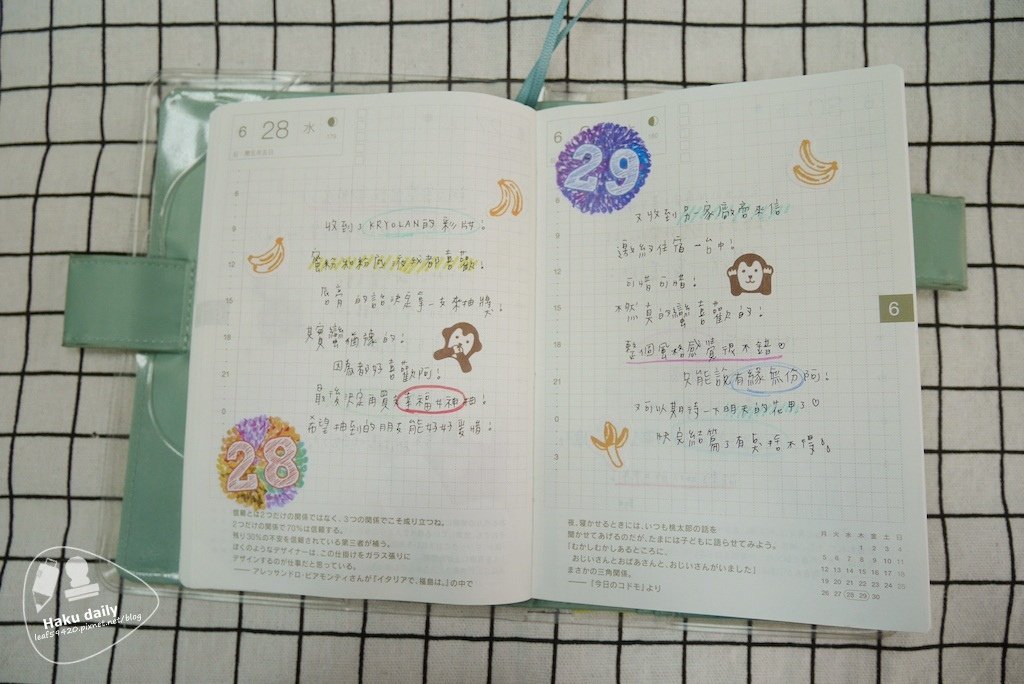 6 28 水
旧 閏五月五日
179
6
9
12
15
18
21
0
3
收到了KRYOLAN的彩妝!
蜜粉和粉底液我都喜歡!
因為都好喜歡阿!
最後決定再買
希望抽到的朋友能好好愛惜!
28
信頼とは2つだけの関係ではなく、3つの関係でこそ成り立つね。
2つだけの関係で70%は信頼する。
残り30%の不安を信頼されている第三者が補う。
ぼくのようなデザイナーは、この仕掛けをガラス張りに
デザインするのが仕事だと思っている。
—— アレッサンドロ・ビアモンティさんが『イタリアで、福島は。』の中で
6
29
180
9
12
15
18
21
0
3
又收到另一家廠商來信
邀約住宿-台中!
可惜可惜!
不然真的蠻喜歡的!
整個風格感覺很不錯
只能說有緣無份阿!
又可以期待一下明天的花甲了♡
快完結篇了有點捨不得
6
夜、寝かせるときには、いつも桃太郎の話を
聞かせてあげるのだが、たまには子どもに語らせてみよう。
「むかしむかしあるところに、
おじいさんとおばあさんと、おじいさんがいました」
まさかの三角関係。
——『今日のコドモ』より
月 火 水 木 金 土 日
1 2 3 4
5 6 7 8 9 10 11
12 13 14 15 16 17 18
19 20 21 22 23 24 25
26 27 28 29 30
Haku daily
leaf59420.pixnet.net/blog